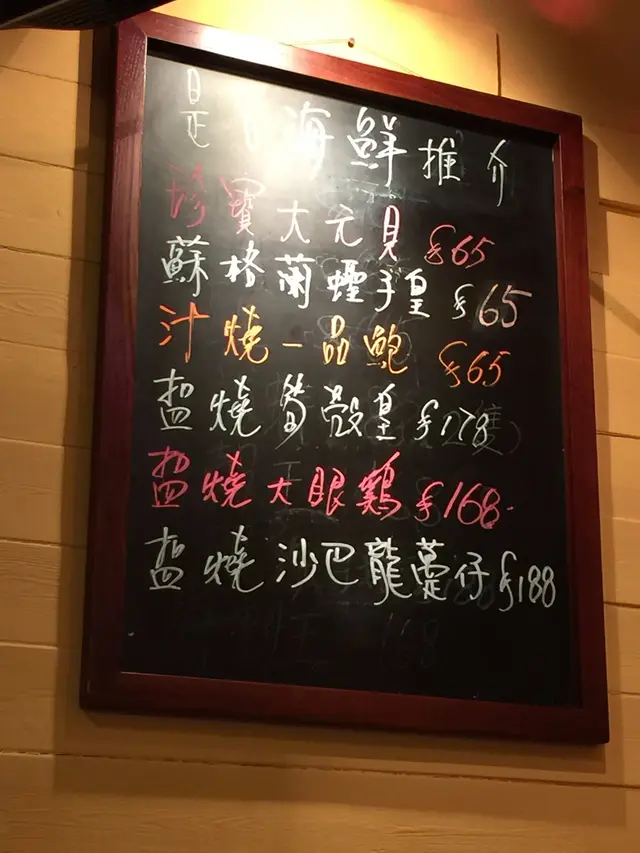 是日海鮮推介
珍寶大元貝 $65
蘇格蘭蟶子皇 $65
汁燒一品鮑 $65
盐燒筍殼皇 $178
盐燒大眼鷄 $168
盐燒沙巴龍躉仔 $188